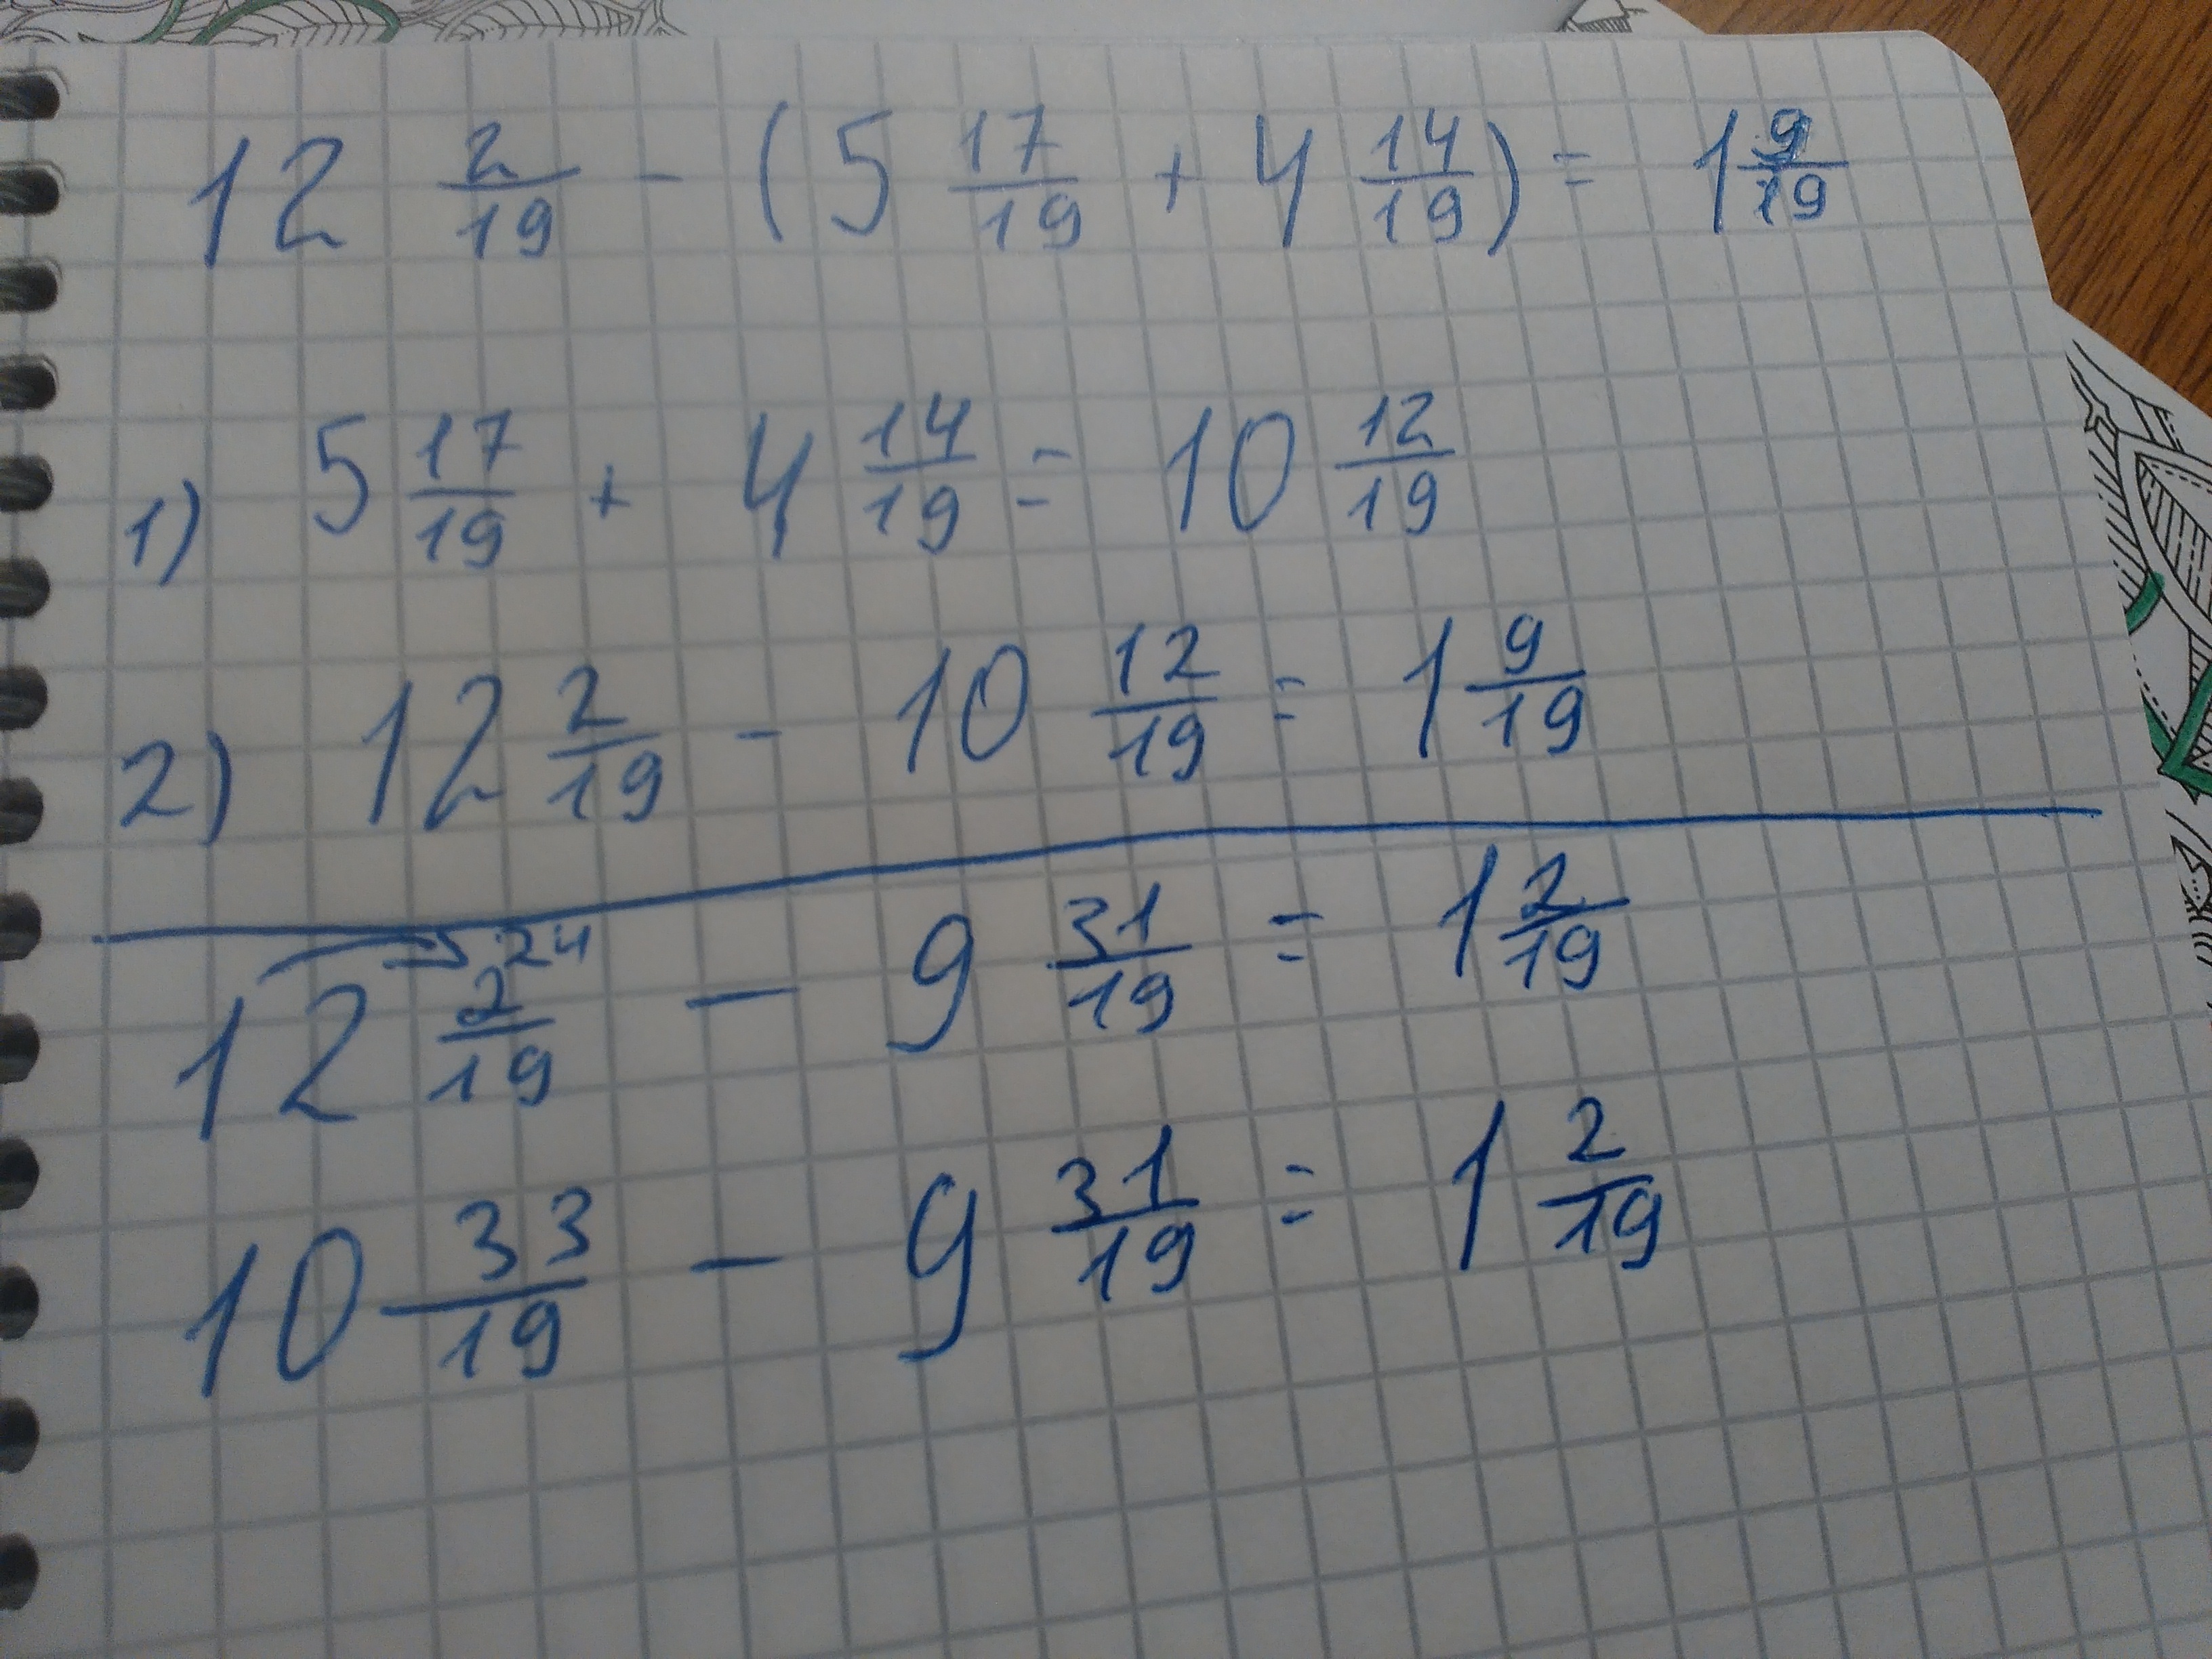 12 2/19 - (5 17/19 + 4 14/19) = 1 9/19
1) 5 17/19 + 4 14/19 = 10 12/19
2) 12 2/19 - 10 12/19 = 1 9/19
12 2/19 24 - 9 31/19 = 1 2/19
10 33/19 - 9 31/19 = 1 2/19